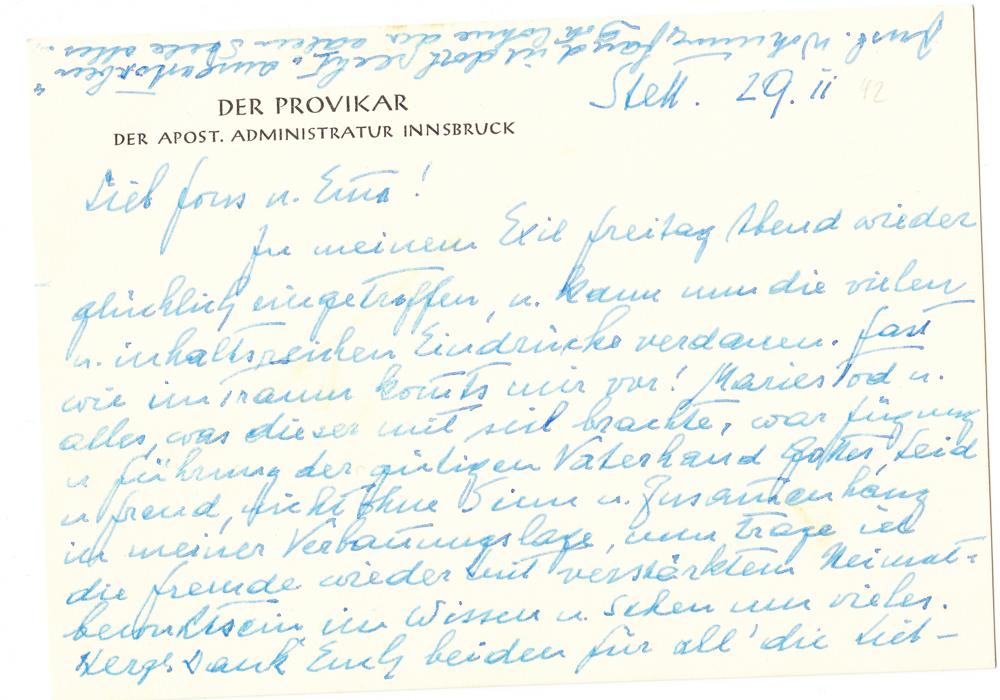 Wohnung fand ich dort recht ausgestorben
Gott lohne der edlen Seele alles
Stett. 29. II 42
DER PROVIKAR
DER APOST. ADMINISTRATUR INNSBRUCK
Lieb u. Erna!
In meinem Exil freitag Abend wieder
glücklich eingetroffen, u. kann nun die vielen
u. inhaltsreichen Eindrücke verdauen. Fast
wie im Traum kom̅ts mir vor! Maries Tod u.
alles, was dieser mit sich brachte, war Fügung
u Führung der gütigen Vaterhand Gottes, Leid
u Freud, nicht ohne Sinn u. Zusam̅enhang
in meiner Verban̅ungslage, nun trage ich
die Fremde wieder mit verstärktem Heimat=
bewußtsein im Wissen u. Sehen um vieles.
Herzl. Dank Euch beiden für all' die Lieb-